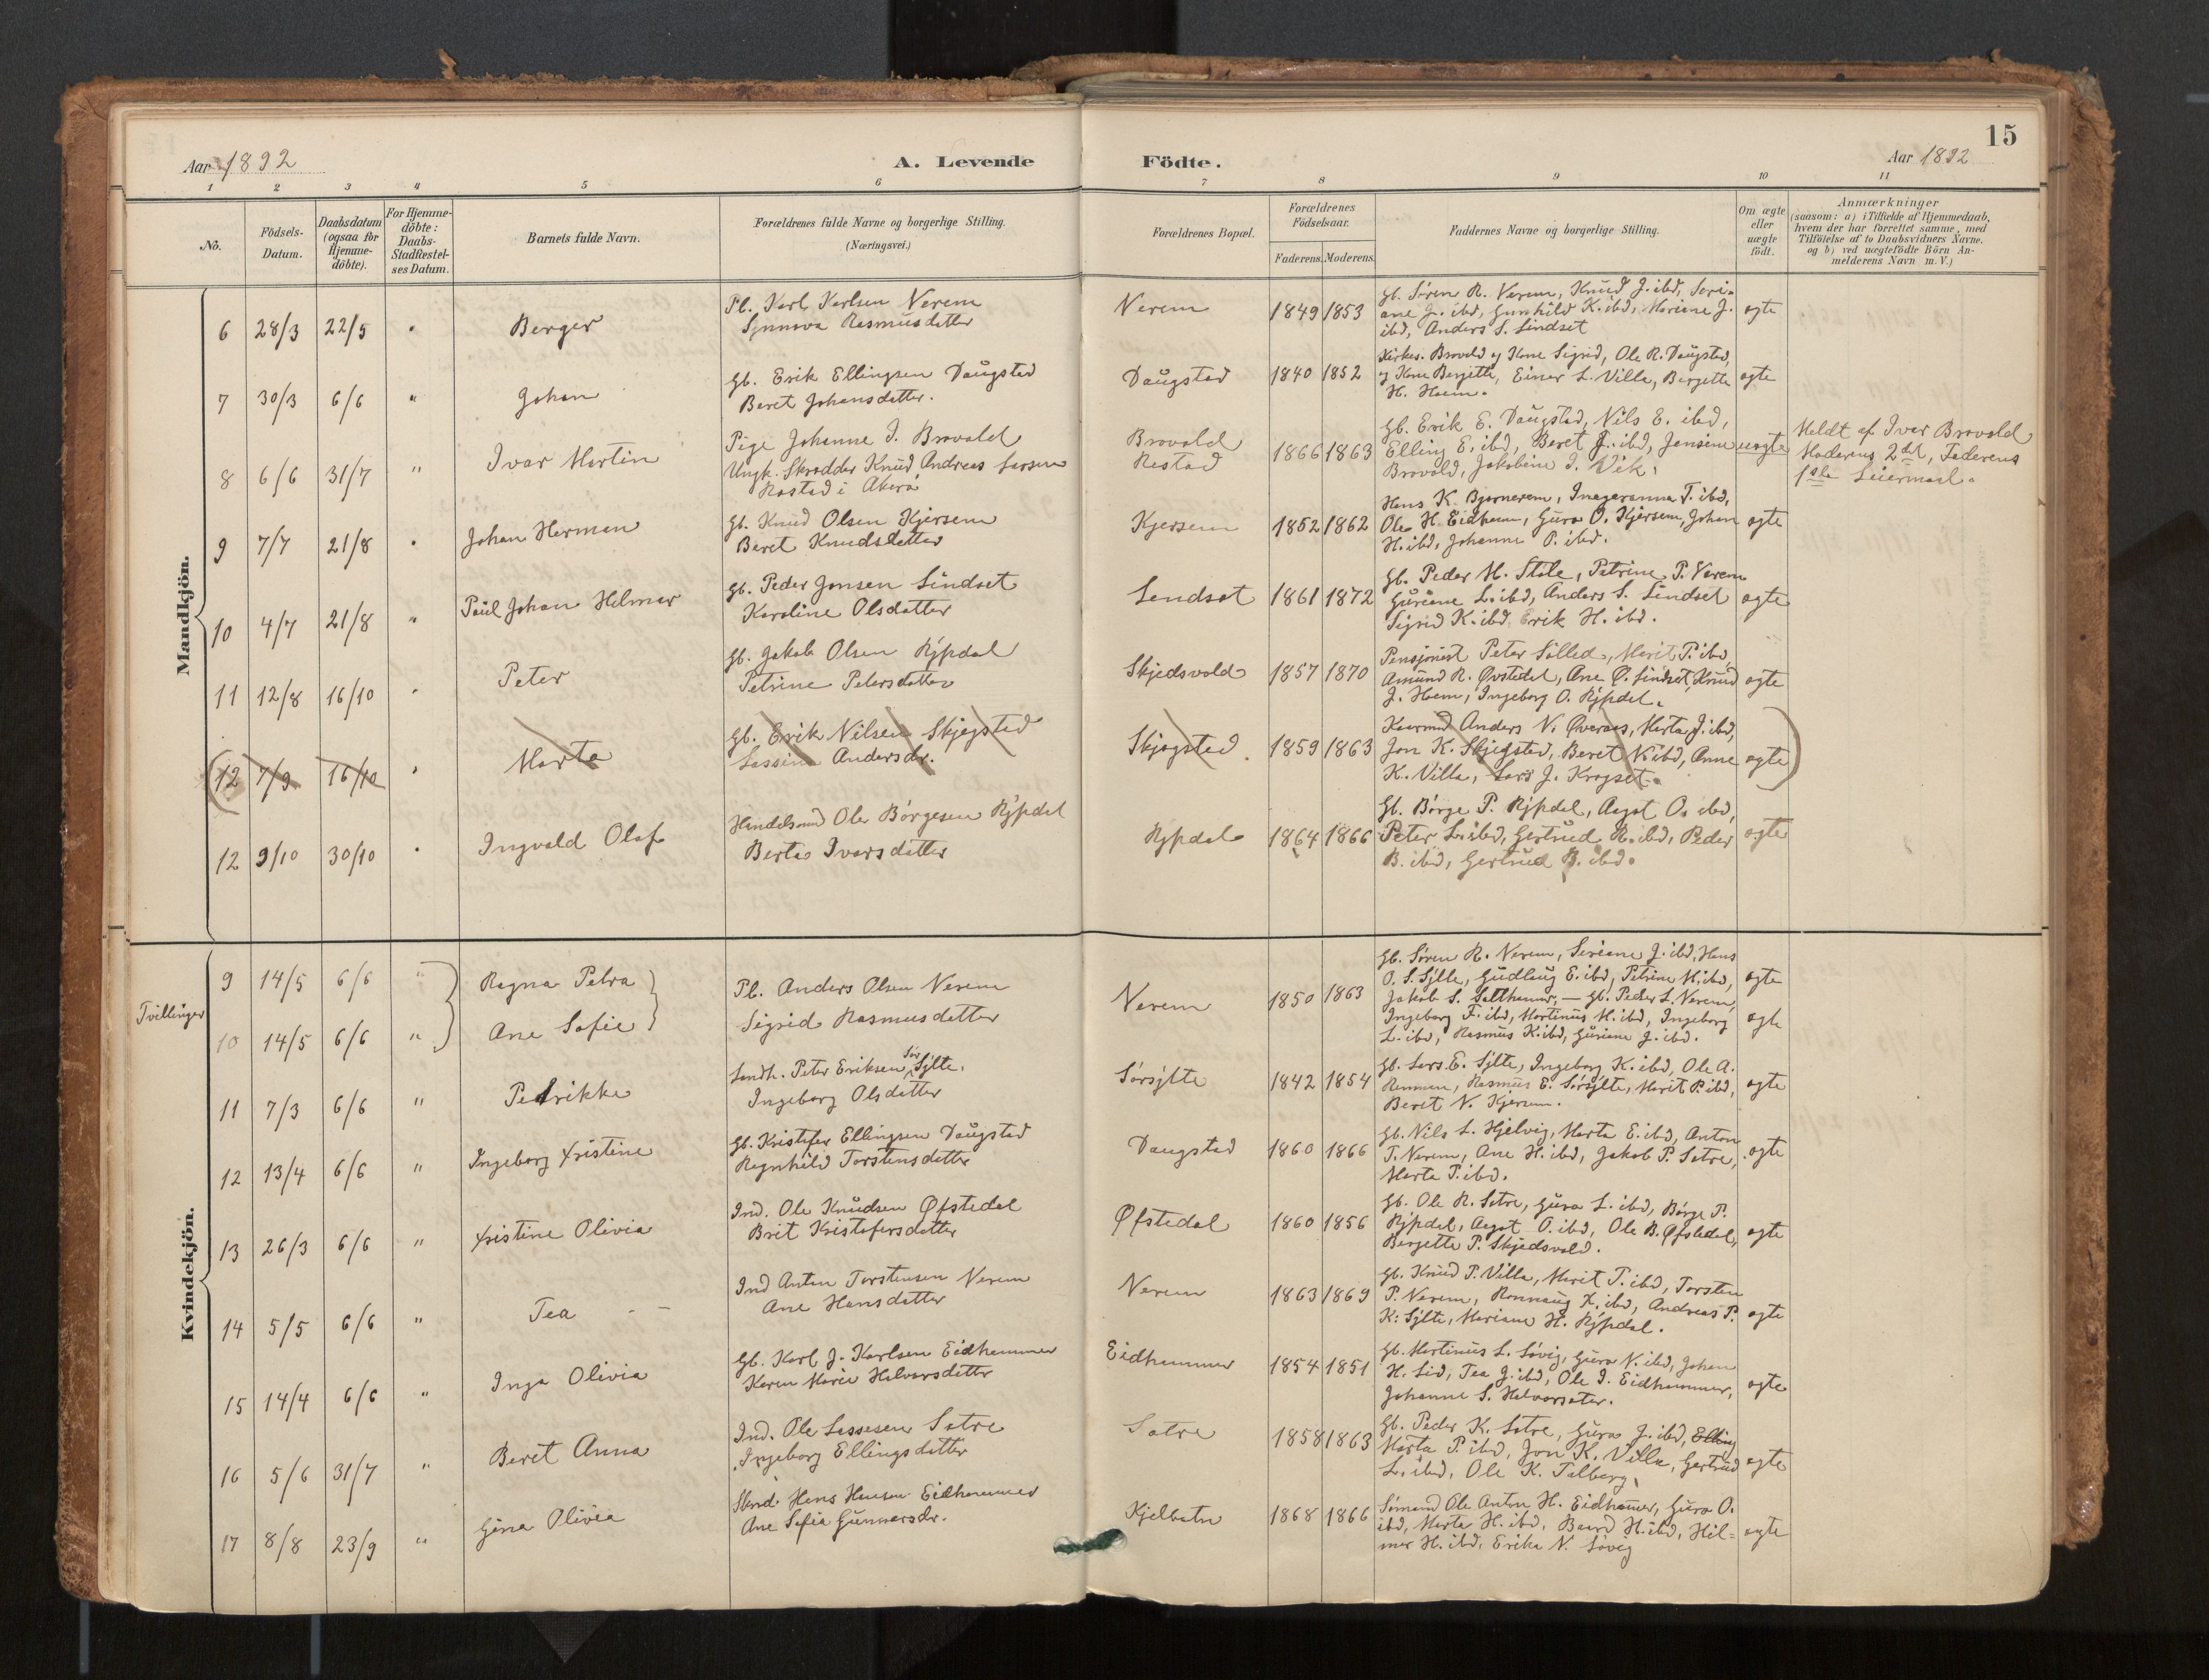 15
Aar 1892
A. Levende
Födte.
Aar 1892
1 2 3 4 5 6 7 8 9 10 11
No.
Födsels-
Datum.
Daabsdatum
(ogsaa for
Hjemme-
döbte).
For Hjemme-
döbte:
Daabs-
Stadfæstel-
ses Datum.
Barnets fulde Navn.
Forældrenes fulde Navne og borgerlige Stilling.
(Næringsvei.)
Forældrenes Bopæl.
Forældrenes
Födselsaar.
Faderens. Moderens.
Faddernes Navne og borgerlige Stilling.
Om ægte
eller
uægte
födt.
Anmærkninger
(saasom: a) i Tilfælde af Hjemmedaab,
hvem der har forrettet samme, med
Tilföielse af to Daabsvidners Navne.
og b) ved uægtefödte Börn An-
melderens Navn m. V.)
Mandkjön.
6 28/3 22/5 " Berger
Pl. Karl Karlsen Nerem
Synnova Rasmusdatter
Nerem 1849 1853
Gb. Sören R. Nerem, Knud J. ibd, Seri-
ane J. ibd, Gunhild K. ibd, Mariane J.
ibd, Anders S. Lindset
ægte
7 30/3 6/6 " Johan
Gb. Erik Ellingsen Daugstad
Beret Johansdatter.
Daugstad 1840 1852
Kirkes. Brovold og Kone Sigrid, Ole R. Daugstad,
og Kone Bergitte, Einar L. Villa, Bergitte
H. Hoem.
ægte
8 6/6 31/7 " Ivar Martin
Pige Johanne I. Brovold
Ungk. Skrædder Knud Andreas Larsen
Rastad i Akerö
Brovold
Restad
1866 1863
Gb. Erik E. Daugstad, Nils E. ibd,
Elling E. ibd, Beret J. ibd, Jensine
Brovold, Jakobine I. Vik.
uægte
Meldt af Ivar Brovold
Moderens 2det, Faderens
1ste Leiermaal.
9 7/7 21/8 " Johan Herman
Gb. Knud Olsen Kjersem
Beret Knudsdatter
Kjersem 1852 1862
Hans K. Bjørnerem, Ingeranna T. ibd,
Ole H. Eidhamm, Gura O. Kjersem, Johan
H. ibd, Johanne P. ibd.
ægte
10 4/7 21/8 " Paul Johan Hilmar
Gb. Peder Jonsen Lindset
Karoline Olsdatter
Lendset 1861 1872
Gb. Peder M. Stöle, Petrine P. Nerem
Guriane L. ibd, Anders S. Lindset
Sigrid K. ibd, Erik H. ibd.
ægte
11 12/8 16/10 " Peter
Gb. Jakob Olsen Rypdal
Petrine Petersdatter
Skjedsvold 1857 1870
Pensjonist Peter Solled, Marit P. ibd,
Amund R. Øvstedal, Ane O. Lindset, Knud
J. Hoem, Ingeborg O. Rypdal.
ægte
(12 7/9 16/10 " Marta
Gb. Erik Nilsen Skjegsted
Lassine Andersdr.
Skjegsted. 1859 1863
Anders N. Øveraas, Marta J. ibd,
Jon K. Skjegsted, Beret N. ibd, Anne
K. Villa, Lars J. Kragset.
ægte)
12 9/10 30/10 " Ingvald Olaf
Handelsmd Ole Börgesen Rypdal
Berta Ivarsdatter
Rypdal 1864 1866
Gb. Börge P. Rypdal, Aagot O. ibd,
Peter L. ibd, Gertrud R. ibd, Peder
B. ibd, Gertrud B. ibd.
ægte
Kvindekjön.
Tvillinger
9 14/5 6/6 " Ragna Petra
10 14/5 6/6 " Ane Sofie
Pl. Anders Olsen Nerem
Sigrid Rasmusdatter
Nerem 1850 1863
Gb. Sören R. Nerem, Seriane J. ibd, Hans
O. S. Sylte, Gudlaug E. ibd, Petrine M. ibd,
Jakob S. Salthammer, — Gb. Peder L. Nerem,
Ingeborg F. ibd, Martinus M. ibd, Ingeborg
L. ibd, Rasmus K. ibd, Guriane J. ibd.
ægte
ægte
11 7/3 6/6 " Pedrikke
Landh. Peter Eriksen Sör Sylte.
Ingeborg Olsdatter
Sörsylte 1842 1854
Gb. Lars E. Sylte, Ingeborg K. ibd, Ole A.
Remmen, Rasmus E. Sörsylte, Marit P. ibd,
Beret N. Kjersem.
ægte
12 13/4 6/6 " Ingeborg Kristine
Gb. Kristofer Ellingsen Daugstad
Ragnhild Torstensdatter
Daugstad 1860 1866
Gb. Nils L. Hjelvig, Marta E. ibd, Anton
T. Nerem, Ane H. ibd, Jakob P. Sætre,
Marta P. ibd.
ægte
13 26/3 6/6 " Kristine Olivia
Ind. Ole Knudsen Øfstedal
Brit Kristofersdatter
Øfstedal 1860 1856
Gb. Ole R. Sætre, Gura L. ibd, Börge P.
Rypdal, Aagot O. ibd, Ole B. Øfstedal,
Bergitte P. Skjedsvold.
ægte
14 5/5 6/6 " Tea
Ind Anton Torstensen Nerem
Ane Hansdatter
Nerem 1863 1869
Gb. Knud P. Villa, Marit T. ibd, Torsten
P. Nerem, Rannaug K. ibd, Andreas P.
K. Sylte, Mariane H. Rypdal.
ægte
15 14/4 6/6 " Inga Olivia
Gb. Karl J. Karlsen Eidhammer
Karen Marie Halvorsdatter
Eidhammer 1854 1851
Gb. Martinus L. Sövig, Gura N. ibd, Johan
H. Lid, Tea J. ibd, Ole I. Eidhammer,
Johanne S. Halvorsæter.
ægte
16 5/6 31/7 " Beret Anna
Ind. Ole Lassesen Sætre
Ingeborg Ellingsdatter
Sætre 1858 1863
Gb. Peder K. Sætre, Gura J. ibd, Elling
Marta P. ibd, Jon K. Villa, Gertrud
L. ibd, Ole K. Talberg.
ægte
17 8/8 23/9 " Gina Olivia
Skrd. Hans Hansen Eidhammer
Ane Sofia Gunnarsdr.
Kjelbotn 1868 1866
Sömand Ole Anton H. Eidhammer, Gura O.
ibd, Marta H. ibd, Baard H. ibd, Hil-
mar H. ibd, Erika N. Sövig
ægte